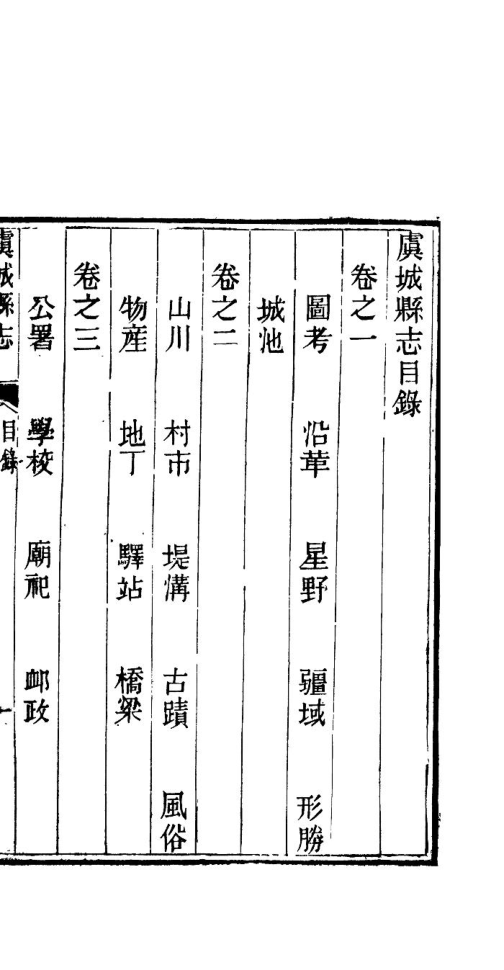 虞城縣志目錄
卷之一
圖考 沿革 星野 疆域 形勝
城池
卷之二
山川 村市 堤溝 古蹟 風俗
物産 地丁 驛站 橋梁
卷之三
公署 學校 廟祀 䘏政
虞城縣志 目錄 一